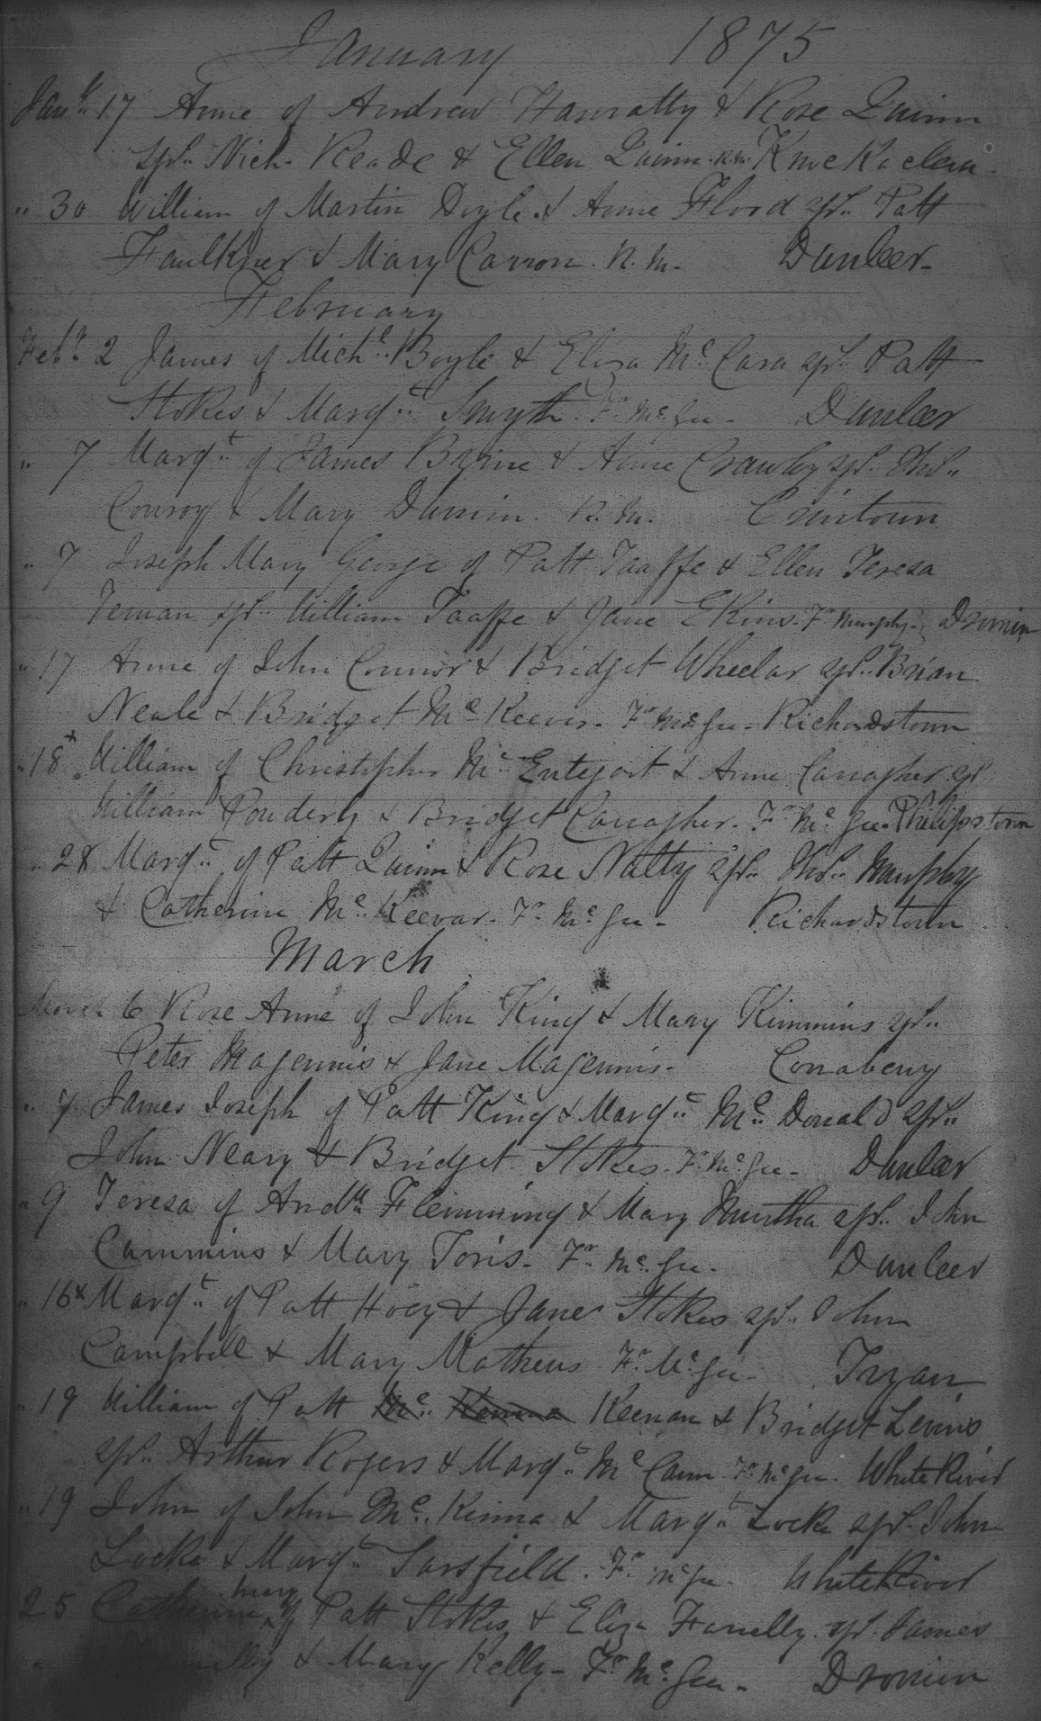 January 1875
Jany 17 Anne of Andrew Hanratty & Rose Quinn
sps. Nich. Reade & Ellen Quinn. R.M.
" 30 William of Martin Doyle & Anne Flood sps. Patt
Faulkner & Mary Carron. R.M. Dunleer
February
Feby 2 James of Michl. Boyle & Eliza Mc Cara sps. Patt
Stokes & Margt. Smyth. Fr. Mc Gee - Dunleer
" 7 Margt. of James Byrne & Anne Crawley sps. Thos.
Conroy & Mary Dunin. R.M.
" 7 Joseph Mary George of Patt Taaffe & Ellen Teresa
Ternan sps. William Taaffe & Jane Ekins. Fr. Murphy. Dromin
" 17 Anne of John Connor & Bridget Wheelar sps. Brian
Neale & Bridget Mc Keever. Fr. Mc Gee - Richardstown
" 18 x William of Christopher Mc Entegart & Anne Canagher sps
William Pouderly & Bridget Canagher. Fr. Mc Gee. Philipstown
" 28 Margt. of Patt Quinn & Rose Natty sps. Thos. Murphy
& Catherine Mc Keevar. Fr. Mc Gee - Richardstown
March
March 6 Rose Anne of John King & Mary Kimmins sps.
Peter Magennis & Jane Magennis.
" 7 James Joseph of Patt King & Margt. Mc Donald sps.
John Neary & Bridget Stokes. Fr. Mc Gee - Dunleer
" 9 Teresa of Andw. Flemming & Mary Murtha sps. John
Cammins & Mary Toris. Fr. Mc Gee. Dunleer
" 16 x Margt. of Patt Hoey & Jane Stokes sps. John
Campbell & Mary Mathews. Fr. Mc Gee - Tryan
" 19 William of Patt Mc Kenna Keenan & Bridget Levins
sps. Arthur Rogers & Margt. Mc Cann. Fr. Mc Gee. White River
" 19 John of John Mc Kinna & Margt. Locke sps. John
Locke & Margt. Sarsfield. Fr. Mc Gee. White River
25 Catherine Mary of Patt Stokes & Eliza Fanelly. sps. James
& Mary Kelly - Fr. Mc Gee - Dromin